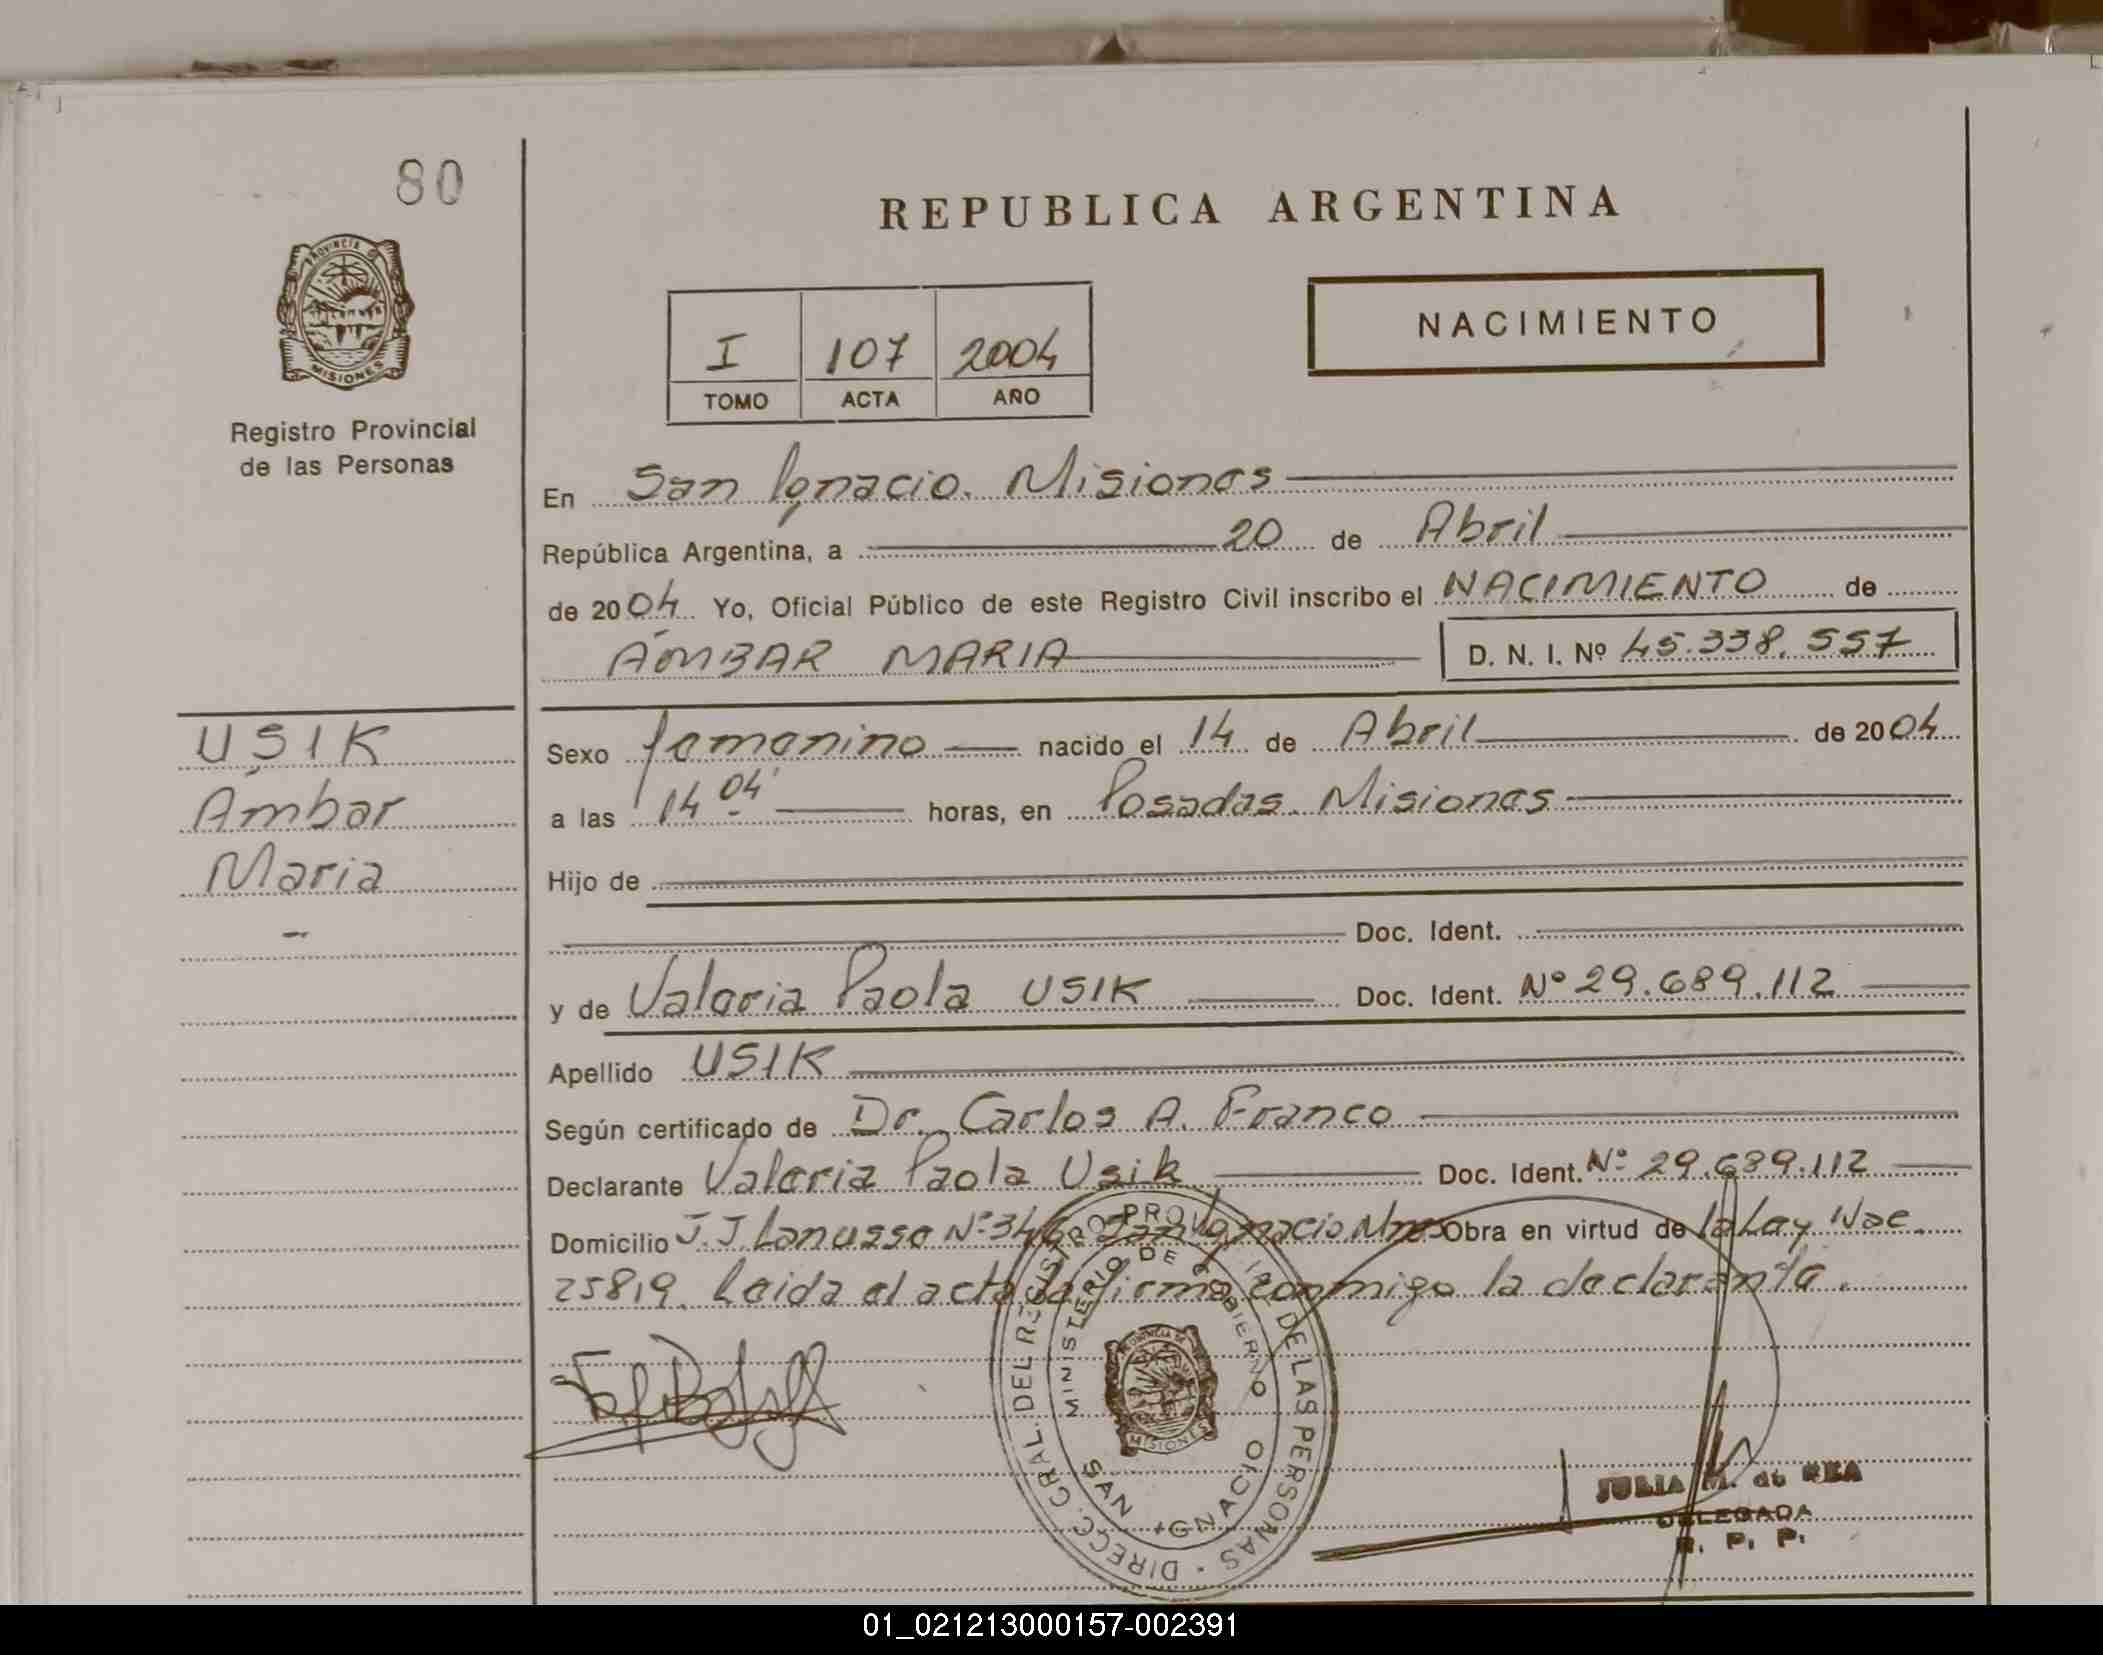 80
REPUBLICA ARGENTINA
PROVINCIA DE
MISIONES
NACIMIENTO
I 107 2004
TOMO ACTA AÑO
Registro Provincial
de las Personas
En San Ignacio. Misiones
República Argentina, a 20 de Abril
de 2004 Yo, Oficial Público de este Registro Civil inscribo el NACIMIENTO de
ÁMBAR MARIA D. N. I. Nº 45.338.557
USIK
Ámbar
Maria
Sexo femenino nacido el 14 de Abril de 2004
a las 14 04' horas, en Posadas. Misiones
Hijo de
Doc. Ident.
y de Valeria Paola USIK Doc. Ident. Nº 29.689.112
Apellido USIK
Según certificado de Dr. Carlos A. Franco
Declarante Valeria Paola Usik Doc. Ident. Nº 29.689.112
Domicilio J.J. Lanusse Nº 346 San Ignacio Mnes Obra en virtud de la Ley Nac.
25819. Leida el acta la firma conmigo la declarante.
DIRECC. GRAL. DEL REGISTRO PROVINCIAL DE LAS PERSONAS
MINISTERIO DE GOBIERNO
PROVINCIA DE
MISIONES
SAN IGNACIO
JULIA M. de REA
DELEGADA
R. P. P.
01_021213000157-002391